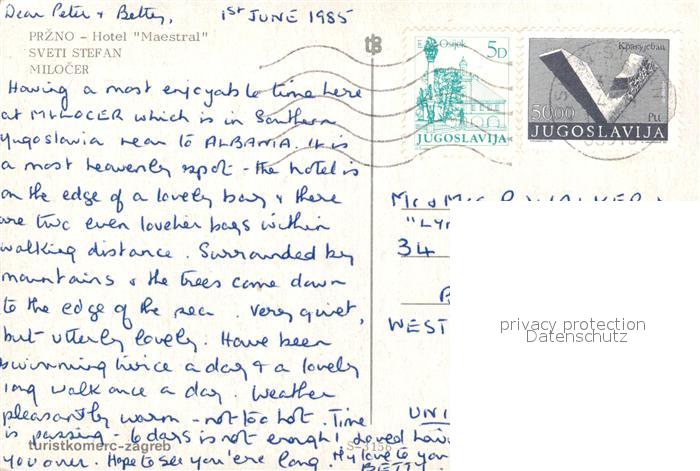 Dear Peter & Betty, 1st JUNE 1985
PRŽNO – Hotel "Maestral"
SVETI STEFAN
MILOČER
Having a most enjoyable time here
at MILOCER which is in Southern
Yugoslavia near to ALBANIA. It is
a most heavenly spot - the hotel is
on the edge of a lovely bay & there
are two even lovelier bays within
walking distance. Surrounded by
mountains & the trees come down
to the edge of the sea. Very quiet,
but utterly lovely. Have been
swimming twice a day & a lovely
long walk once a day. Weather
pleasantly warm - not too hot. Time
is passing - 6 days is not enough! Loved
turistkomerc-zagreb
S-3156
you over. Hope to see you 'ere long. My love to you
BETTY
Osijek
5D
JUGOSLAVIJA
50.00
JUGOSLAVIJA
Mr & Mrs P. WALKER
34
WEST
UNI
privacy protection
Datenschutz